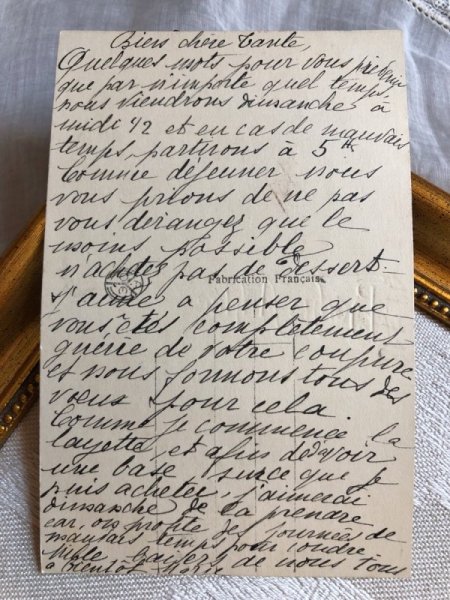 Bien chère Tante,
Quelques mots pour vous prévenir
que par n'importe quel temps,
nous viendrons dimanche à
midi 1/2 et en cas de mauvais
temps, partirons à 5 hs
Comme déjeuner, nous
vous prions de ne pas
vous derangez que le
moins possible
n'achetez pas de dessert.
Fabrication Française
J'aime à penser que
vous êtes complètement
guérie de votre coupure
et nous formons tous des
vœux pour cela.
Comme je commence la
layette et afin d'avoir
une base surce que je
puis acheter, j'aimerai
dimanche de la prendre
car, on profite de journées de
mauvais temps pour coudre
baisers de nous tous
à bientôt